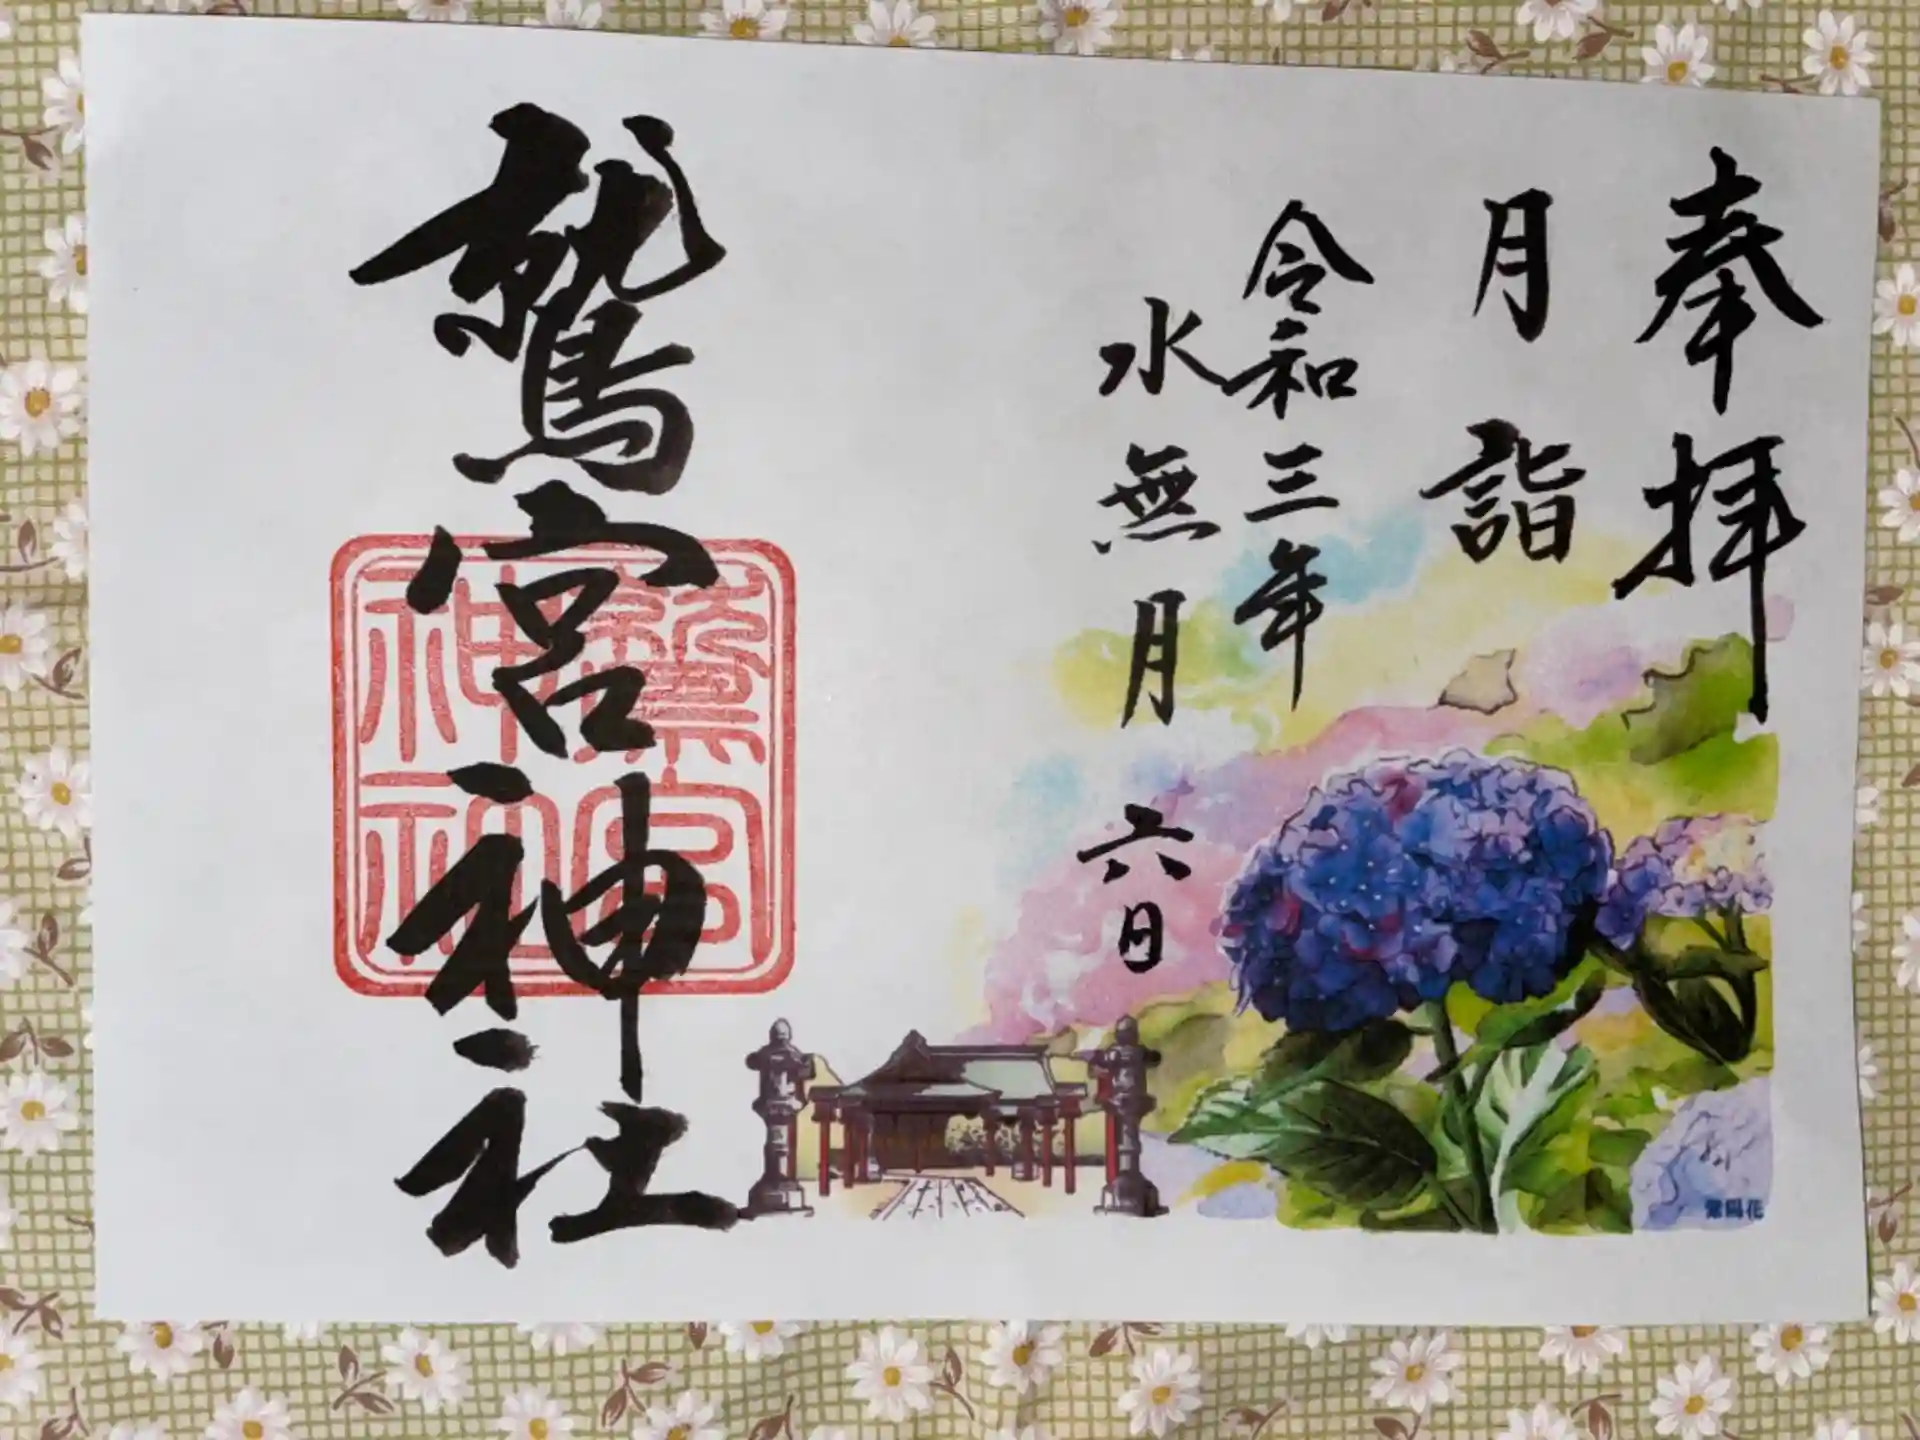 奉拝
月詣
令和三年
水無月六日
鷲宮神社
鷲宮
神社
紫陽花